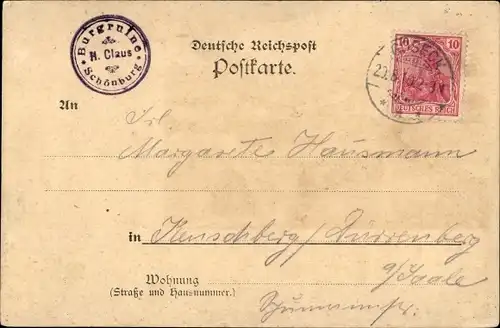 Burgruine
H. Claus
Schönburg
Deutsche Reichspost
Postkarte.
10 10
DEUTSCHES REICH
An
Frl.
Margarete Hausmann
in Keuschberg/Dürrenberg
a/Saale
Wohnung
(Straße und Hausnummer.)